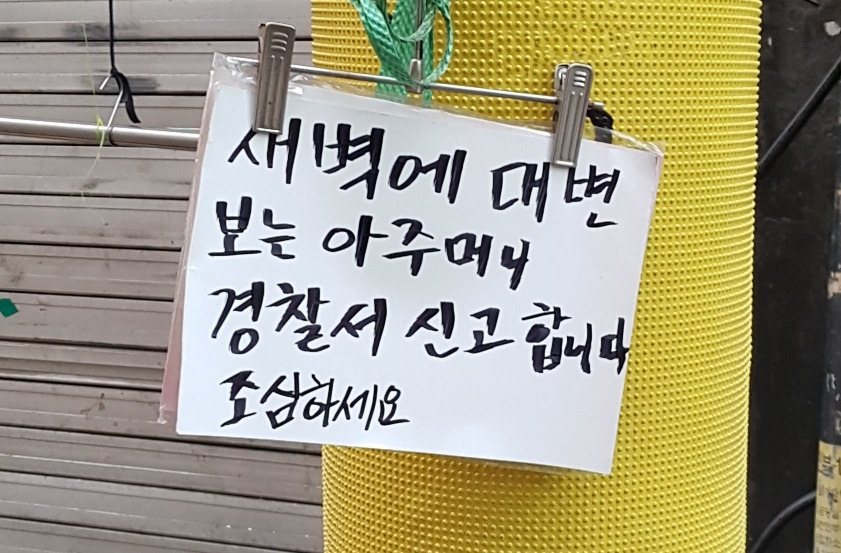 새벽에 대변
보는 아주머니
경찰서 신고합니다
조심하세요